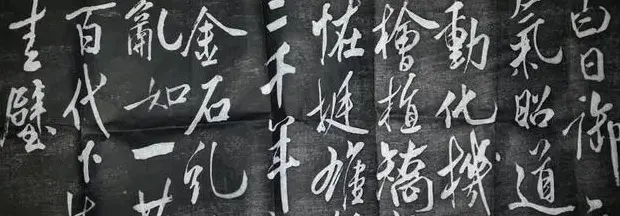 白日御
氣昭道
動化機
檜植矯
恠挺雄
二千年
金石
亂如一
百代下
圭璧